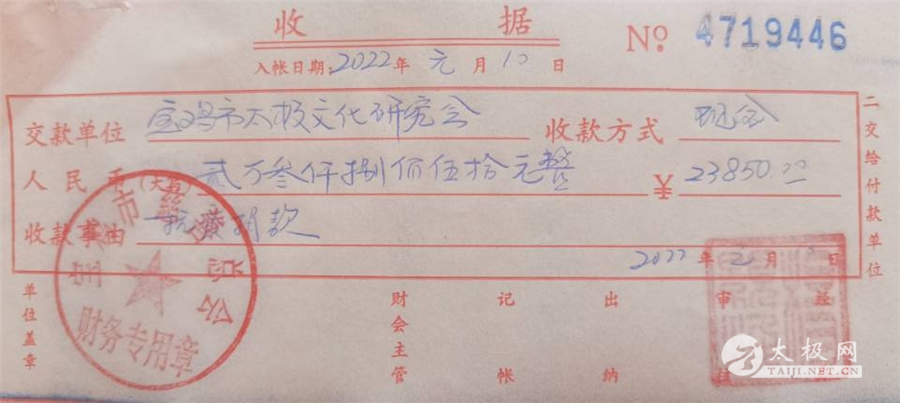 收 据
№ 4719446
入帐日期:2022年元月10日
交款单位 宝鸡市太极文化研究会 收款方式 现金
人民币(大写) 贰万叁仟捌佰伍拾元整 ¥ 23850.00
收款事由 捐款
2022年2月 日
二交给付款单位
单位盖章
财会主管
记帐
出纳
审
经
财务专用章
太极网
TAIJI.NET.CN